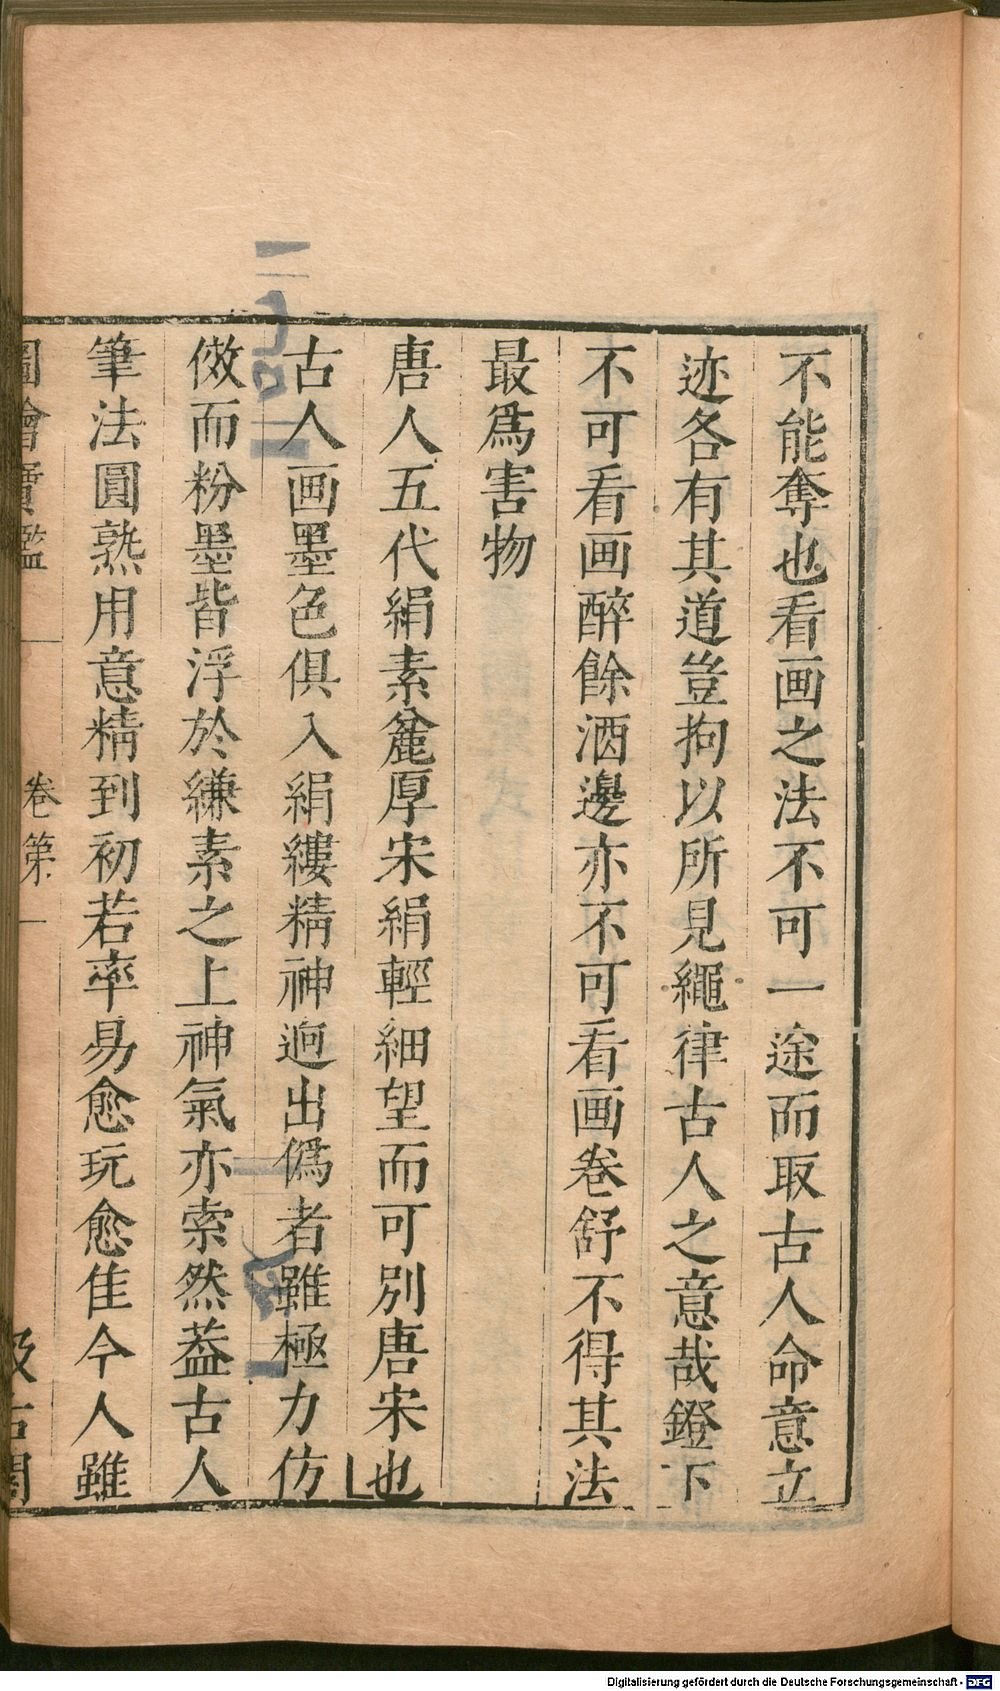 不能奪也看画之法不可一途而取古人命意立
迹各有其道豈拘以所見繩律古人之意哉鐙下
不可看画醉餘酒邊亦不可看画卷舒不得其法
最爲害物
唐人五代絹素麄厚宋絹輕細望而可別唐宋也
古人画墨色俱入絹縷精神迥出僞者雖極力仿
傚而粉墨皆浮於縑素之上神氣亦索然葢古人
筆法圓熟用意精到初若率易愈玩愈佳今人雖
圖繪寶鑑 卷第一 汲古閣
Digitalisierung gefördert durch die Deutsche Forschungsgemeinschaft - DFG